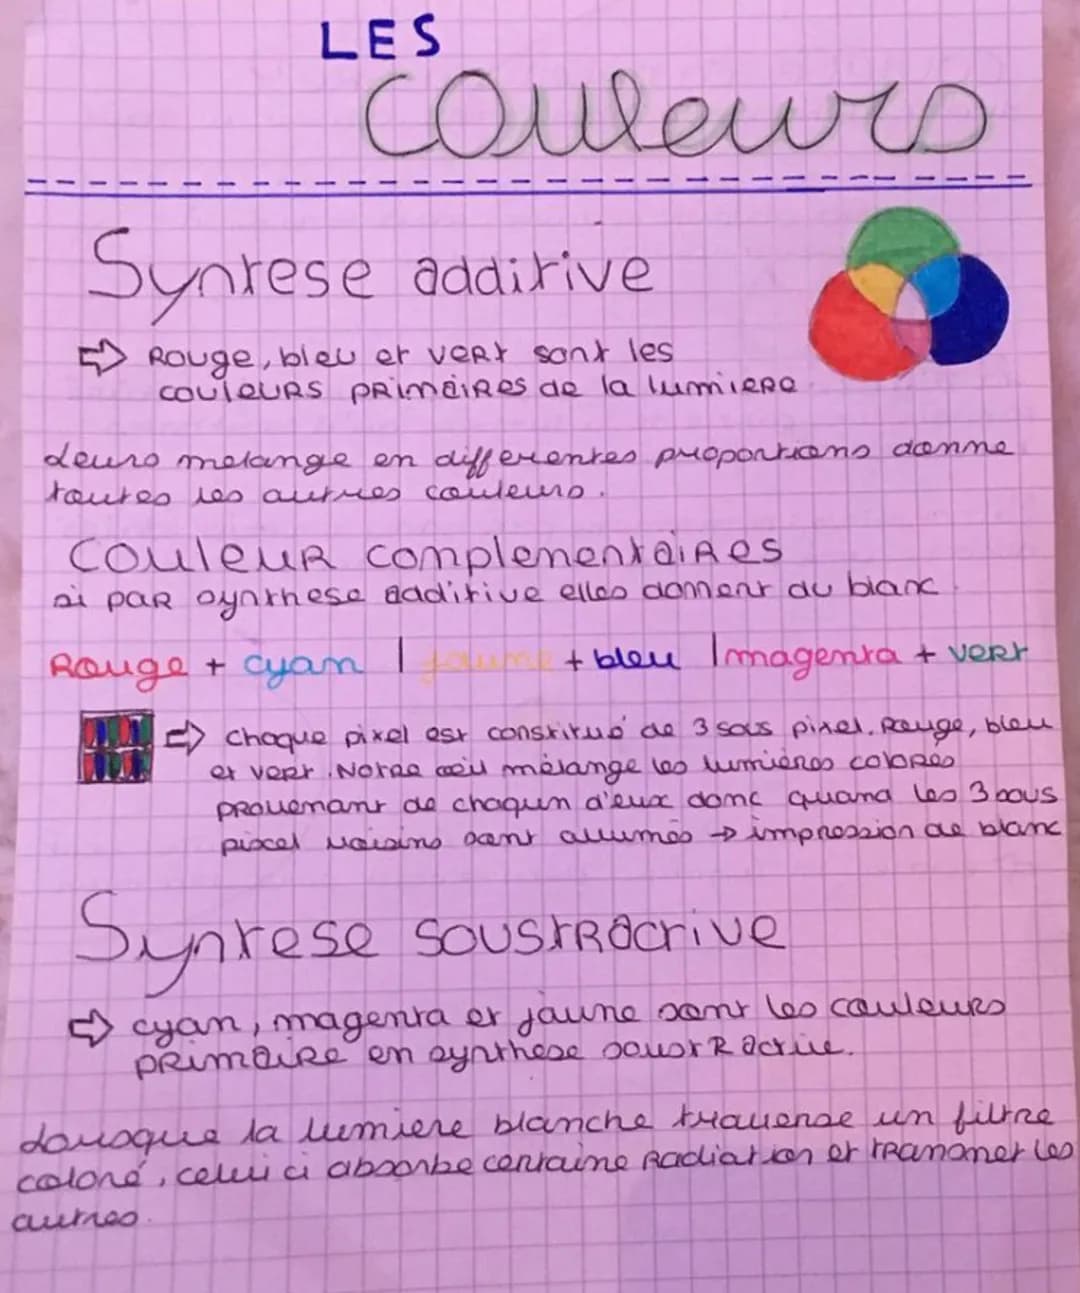 LES
couleurs
Syntese additive
⇨ Rouge, bleu et vert sont les
couleurs primaires de la lumiere
Leurs melange en differentes proportions donne
toutes les autres couleurs.
Couleur complementaires
si par synthese additive elles donnent du blanc.
Rouge + cyan | jaune + bleu | magenta + vert
⇨ chaque pixel est constitué de 3 sous pixel. Rouge, bleu
et vert. Notre oeil mélange les lumières colores
provenant de chaqun d'eux donc quand les 3 sous
pixel voisins sont allumés → impression de blanc
Syntese soustractive
⇨ cyan, magenta et jaune sont les couleurs
primaire en synthese soustractive.
Lorsque la lumiere blanche traverse un filtre
coloré, celui ci absorbe certaine radiation et transmet les
autres.